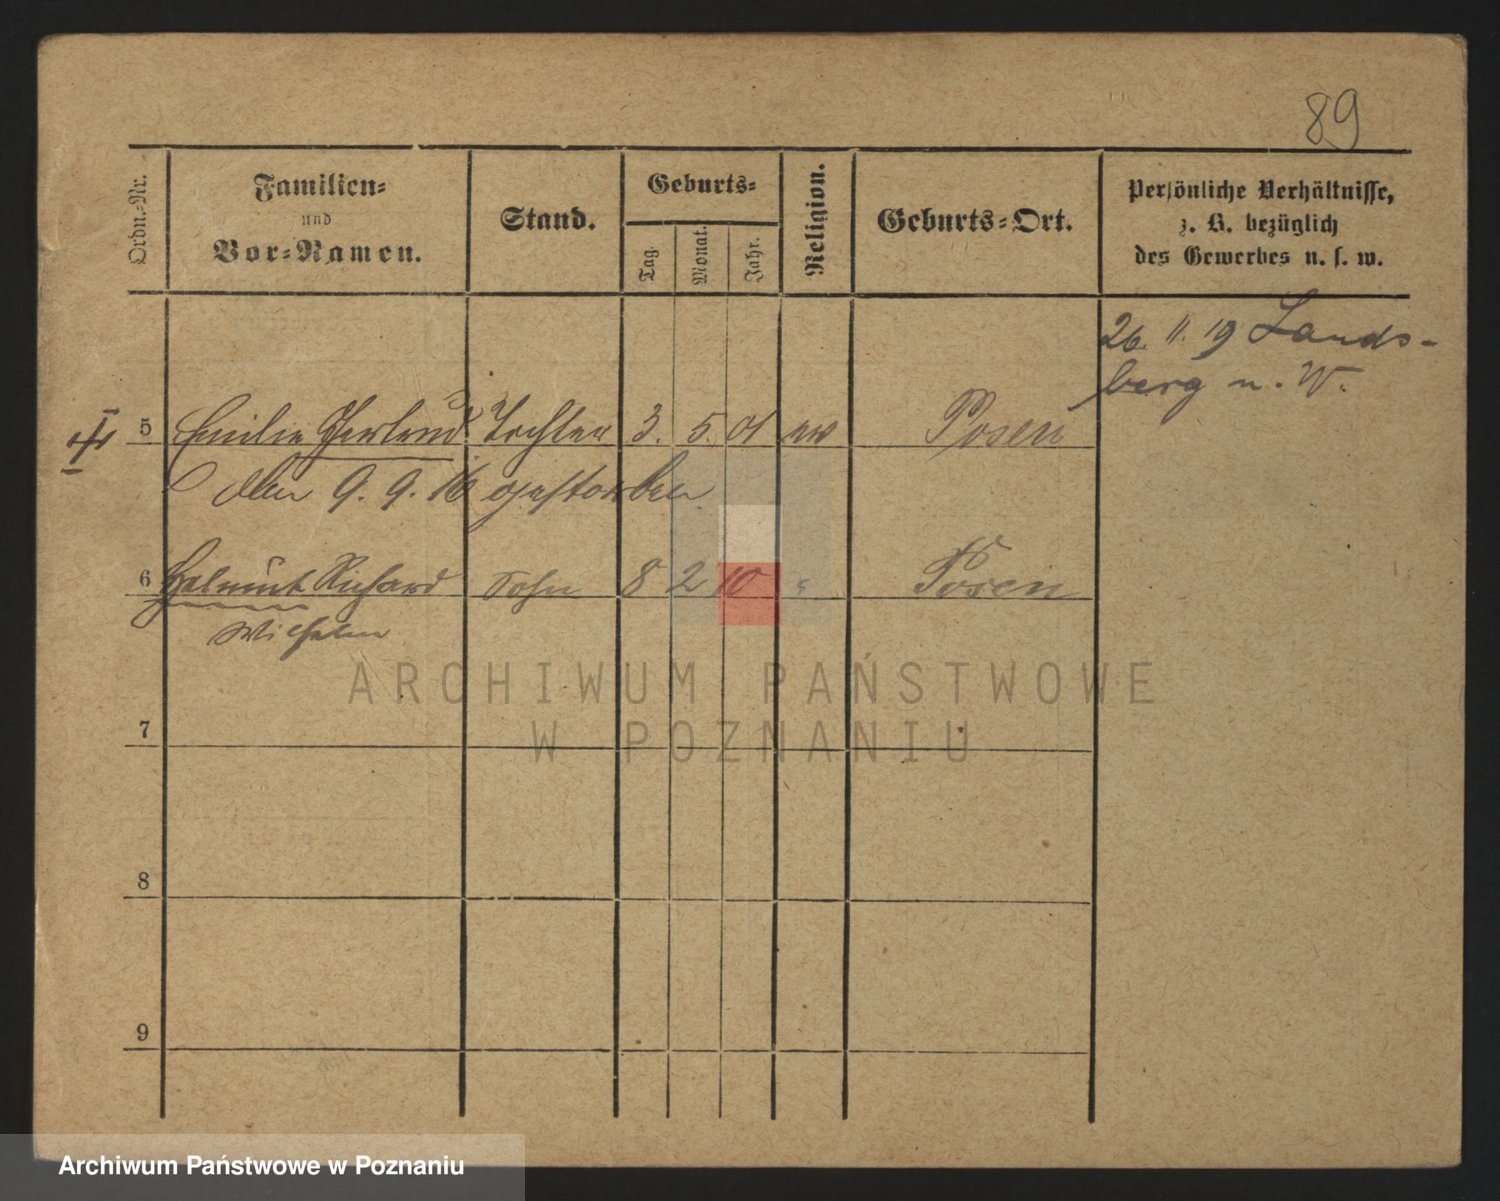 89
Ordn.-Nr.
Familien-
und
Vor-Namen.
Stand.
Geburts-
Tag.
Monat.
Jahr.
Religion.
Geburts-Ort.
Persönliche Verhältnisse,
z. B. bezüglich
des Gewerbes u. s. w.
26. 11. 19 Lands-
berg u. W.
5 Emilie Gertrud Tochter 3. 5. 01 ev Posen
den 9. 9. 16 gestorben
6 Helmut Richard Sohn 8 2 10 " Posen
Wilhelm
7
8
9
ARCHIWUM PAŃSTWOWE
W POZNANIU
Archiwum Państwowe w Poznaniu